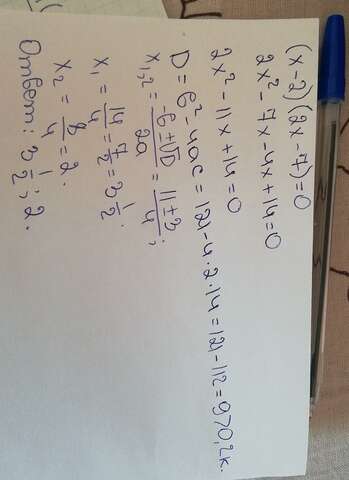 (x-2)(2x-7)=0
2x²-7x-4x+14=0
2x²-11x+14=0
D=b²-4ac=121-4·2·14=121-112=9>0, 2к.
x₁,₂=-b±√D/2a=11±3/4;
x₁=14/4=7/2=3 1/2.
x₂=8/4=2.
Ответ: 3 1/2; 2.